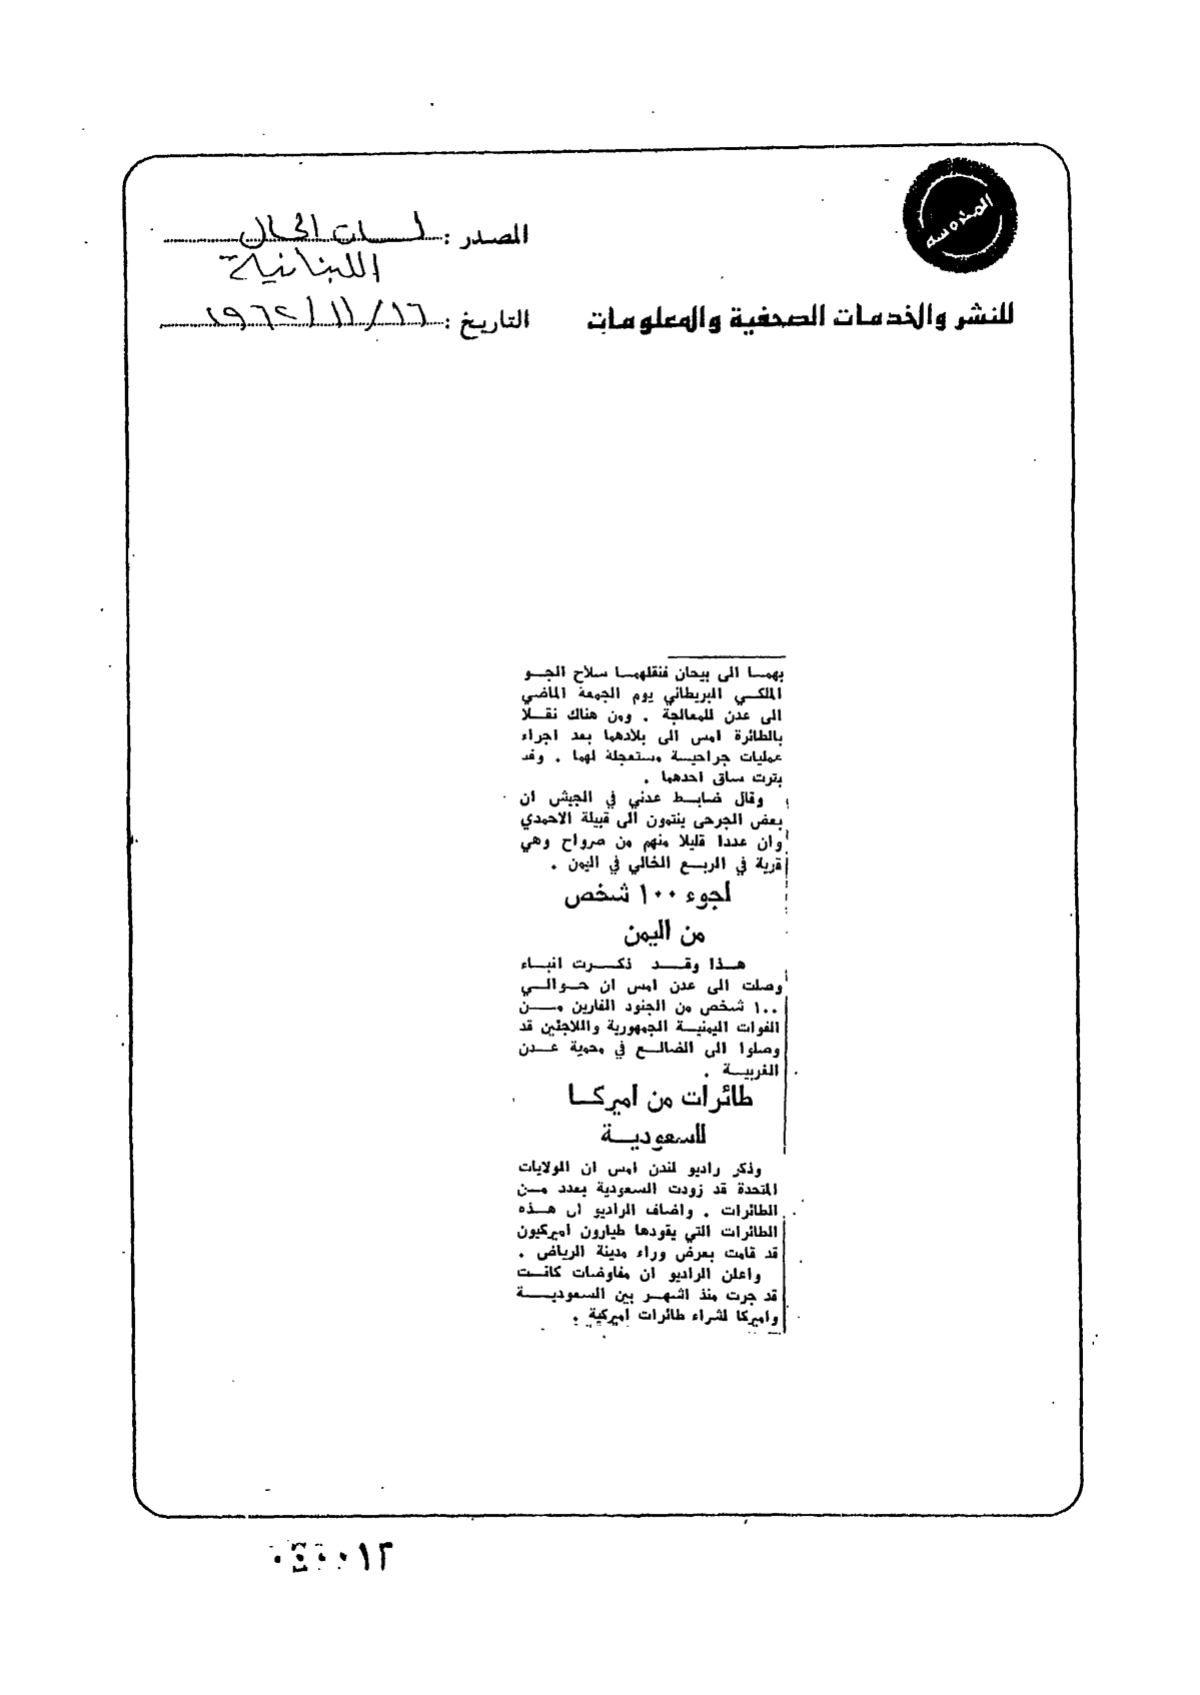 المحروسة
المصدر : لسان الحال
اللبنانية
للنشر والخدمات الصحفية والمعلومات
التاريخ : ١٦/١١/١٩٦٢
بهمـا الى بيحان فنقلهمـا سلاح الجـو
الملكـي البريطاني يوم الجمعة الماضي
الى عدن للمعالجة . ومن هناك نقـلا
بالطائرة امس الى بلادهما بعد اجراء
عمليات جراحيـة مستعجلة لهما . وقد
بترت ساق احدهما .
وقال ضابـط عدني في الجيش ان
بعض الجرحى ينتمون الى قبيلة الاحمدي
وان عددا قليلا منهم من صرواح وهي
قرية في الربـع الخالي في اليمن .
لجوء ١٠٠ شخص
من اليمن
هـذا وقـد ذكـرت انبـاء
وصلت الى عدن امس ان حـوالـي
١٠٠ شخص من الجنود الفارين مـن
القوات اليمنيـة الجمهورية واللاجئين قد
وصلوا الى الضالـع في محمية عـدن
الغربيـة .
طائرات من اميركـا
للسعوديـة
وذكر راديو لندن امس ان الولايات
المتحدة قد زودت السعودية بعدد مـن
الطائرات . واضاف الراديو ان هـذه
الطائرات التي يقودها طيارون اميركيون
قد قامت بعرض وراء مدينة الرياض .
واعلن الراديو ان مفاوضات كانـت
قد جرت منذ اشهـر بين السعوديـة
واميركا لشراء طائرات اميركية .